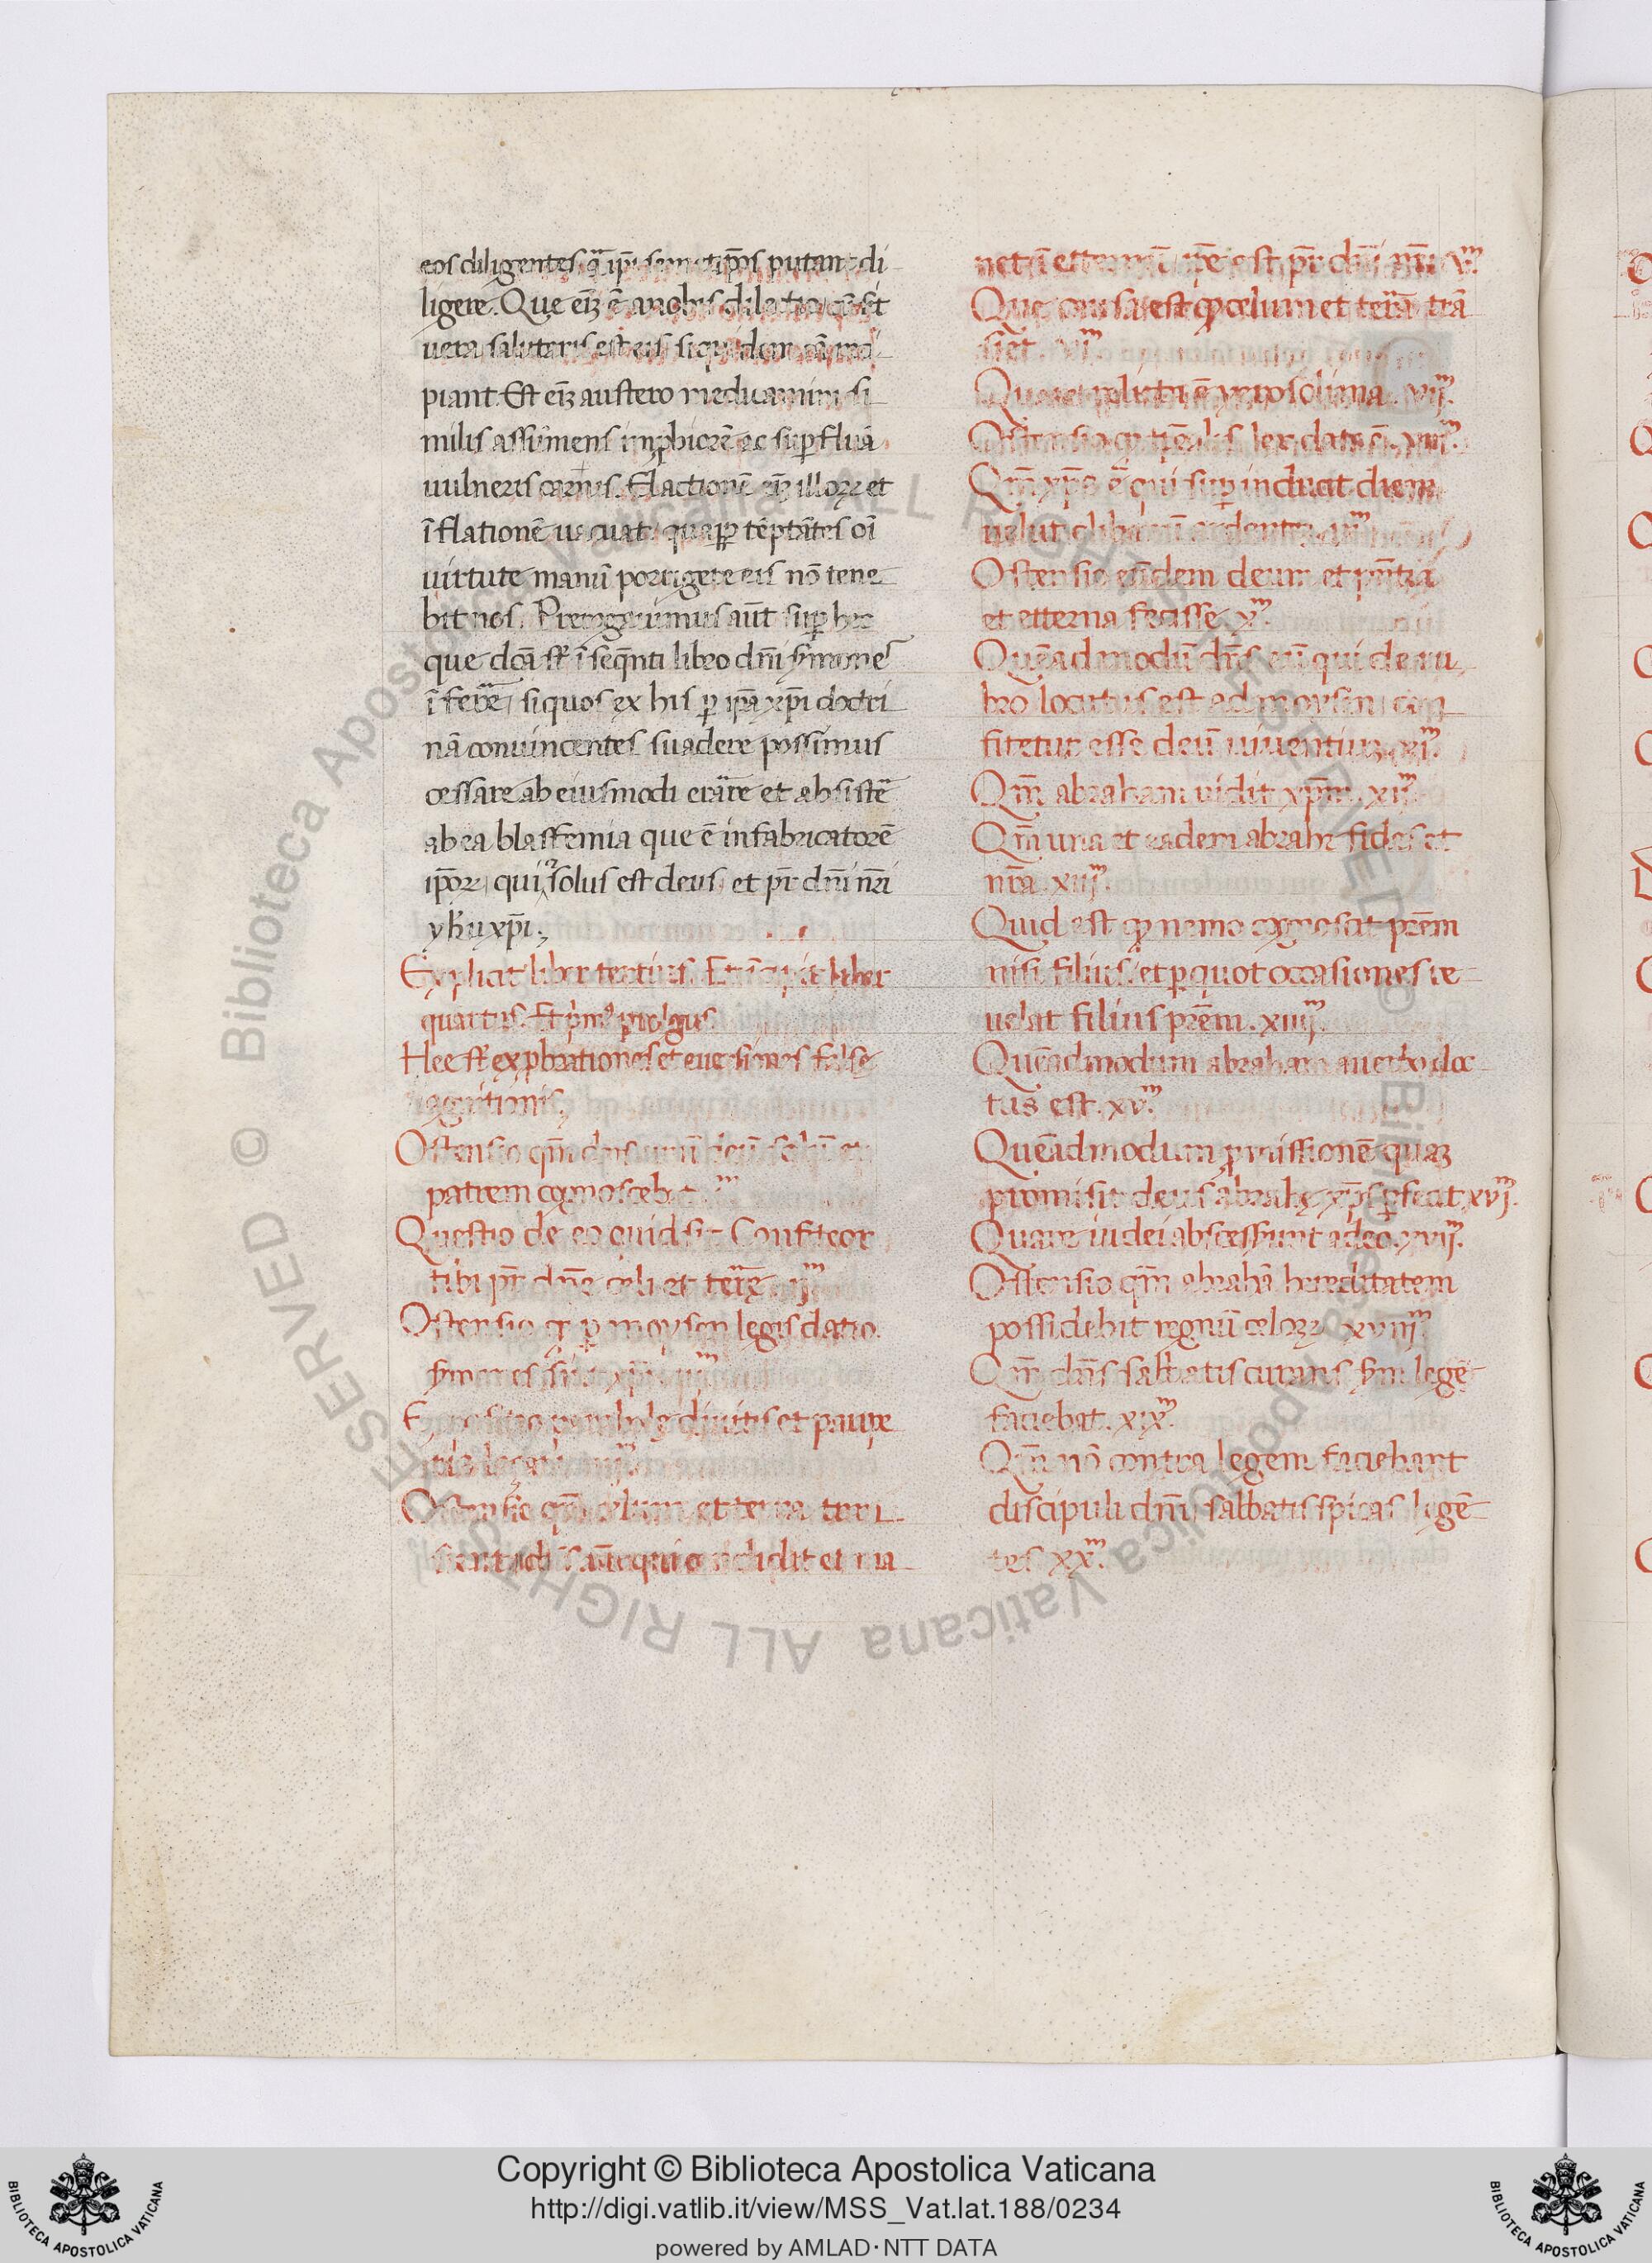 eos diligentes q̄ ip̄i semetip̄os putant di
ligere. Que eī ē a nobis dilectio cū sit
uera salutaris est eis siquidem eā reci
piant. Est eī austero medicamini si
milis assumens impbiorē ac sup̄fluā
uulneris carnis. Elactionē eī illoꝝ et
ī flationē uacuat quap̄p̄ tēptātes oī
uirtute manū porrigere eis nō tene
bit nos. Prerogauimus aūt sup̄ hec
que dcā st̄ ī seq̄nti libro dn̄i s̄mone
ī ferre, si quos ex his ꝑ ip̄ā xp̄i doctri
nā conuincentes suadere possimus
cessare ab eiusmodi errāre et absistē
ab ea blasfemia que ē in fabricatorē
ip̄oꝝ, qui solus est deus, et pr̄ dn̄i nr̄i
yhu xp̄i.
Explicit liber tertius. Et īcipit liber
quartus. Et p̄mo prologus
Hee st̄ explorationes et euersiones false
agnitionis.
Ostensio qm̄ dn̄s unū deū solū et
patrem cognoscebat. .m
Questio de eo quid sit Confiteor
tibi pr̄ dn̄e celi et terrę. ijm
Ostensio qꝫ ꝑ moysen legis datio
s̄mones sūt xp̄i. iijm
Expositio parabolę diuitis et paupe
ris lazari. iiijm
Ostensio qm̄ celum et terra tran
sient, dn̄s aūt qui condidit ea ma
net ī etternū ip̄e est pr̄ dn̄i nr̄i vm.
Que causa est qꝫ celum et terrā trā
siet. vjm.
Quare relicta ē yerosolima. vijm.
Ostensio qꝫ tp̄alis lex data ē. viijm.
Qm̄ xp̄s ē qui sup̄ inducit diem
uelut clibanū ardentē. ixm
Ostensio eūdem deum et pn̄tia
et etterna fecisse. xm.
Quēadmodū dn̄s eū qui de ru,
bro locutus est ad moysin con
fitetur esse deū uiuentiuꝫ. xjm.
Qm̄ abraham uidit xp̄m. xijm.
Qm̄ una et eadem abrahe fides et
nr̄a. xiijm.
Quid est qꝫ nemo cognoscit prēm
nisi filius, et ꝑ quot occasiones re
uelat filius prēm. xiiijm.
Quēadmodum abraham a uerbo doc
tus est. xvm.
Quēadmodum ꝓmissionē quaꝫ
promisit deus abrahę xp̄s ꝑfecit xvjm.
Quare iudei abscesserunt a deo. xvijm.
Ostensio qm̄ abrahā hereditatem
possidebit regnū celoꝝ. xviijm
Qm̄ dn̄s sabbatis curans s̄m legē
faciebat. xixm.
Qm̄ nō contra legem faciebant
discipuli dn̄i, sabbatis spicas legē
tes xxm.
Copyright © Biblioteca Apostolica Vaticana
http://digi.vatlib.it/view/MSS_Vat.lat.188/0234
powered by AMLAD·NTT DATA
BIBLIOTECA APOSTOLICA VATICANA
BIBLIOTECA APOSTOLICA VATICANA
Biblioteca Apostolica Vaticana ALL RIGHTS RESERVED ©
Biblioteca Apostolica Vaticana ALL RIGHTS RESERVED ©